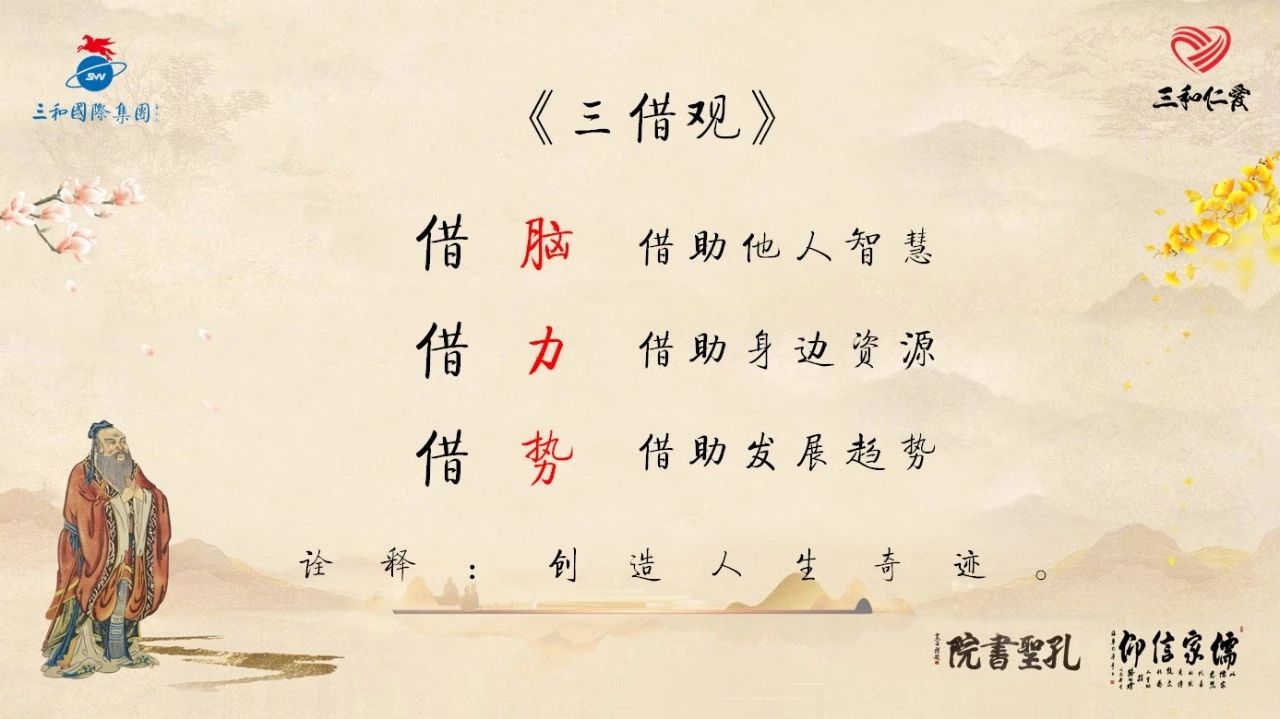 三和國際集團
三和仁爱
《三借观》
借 脑 借助他人智慧
借 力 借助身边资源
借 势 借助发展趋势
诠释：创造人生奇迹。
孔聖書院
儒家信仰